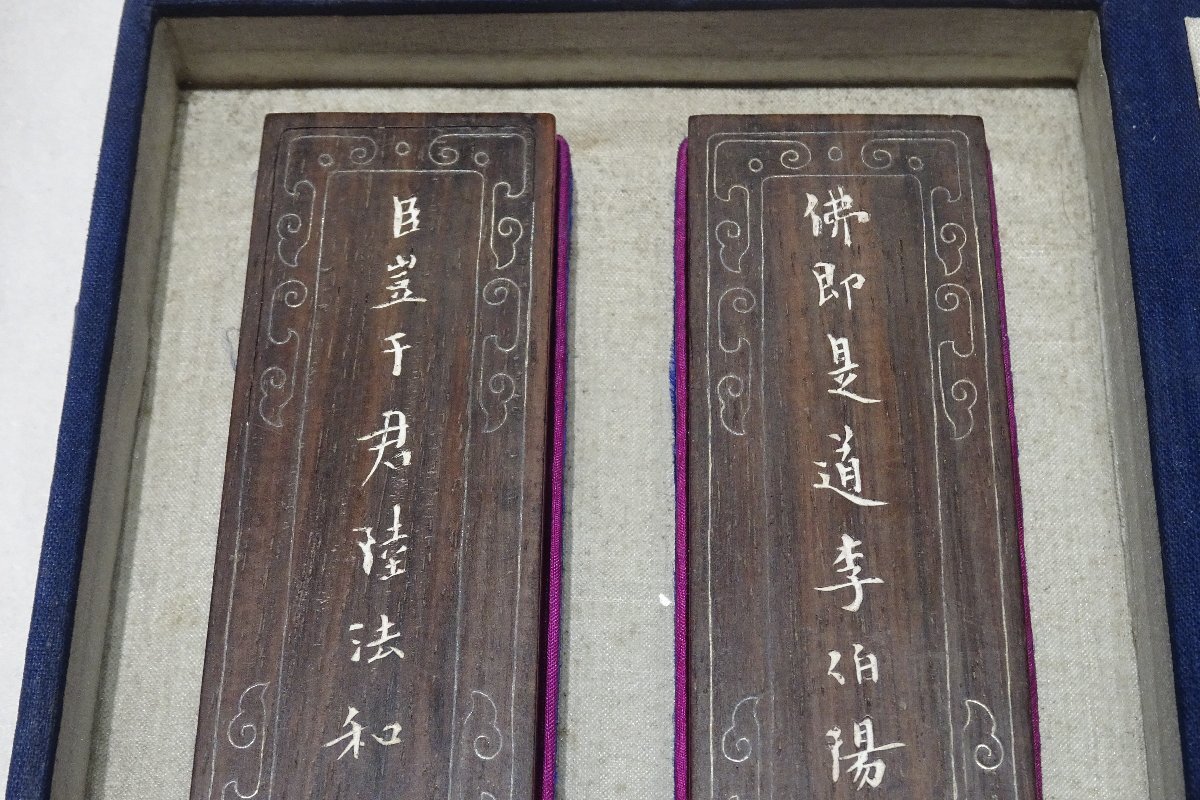 佛即是道李伯陽
臣豈干君陸法和